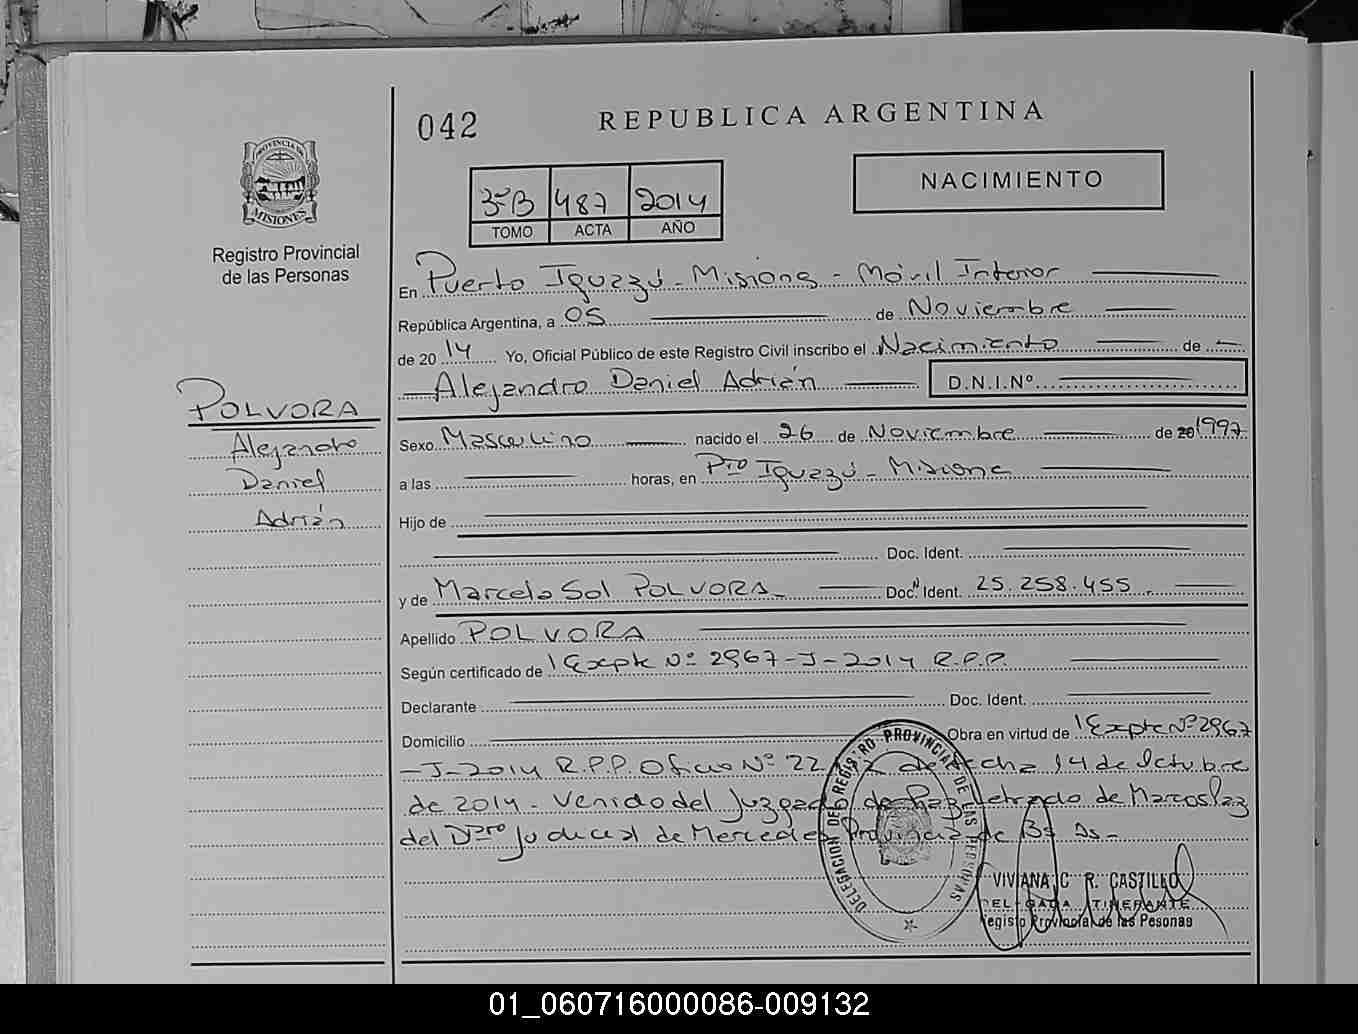 042
REPUBLICA ARGENTINA
PROVINCIA DE
MISIONES
Registro Provincial
de las Personas
NACIMIENTO
3ºB 487 2014
TOMO ACTA AÑO
En Puerto Iguazú - Misiones - Móvil Interior
República Argentina, a 05 de Noviembre
de 2014 Yo, Oficial Público de este Registro Civil inscribo el Nacimiento de
Alejandro Daniel Adrián D.N.I.Nº
POLVORA
Alejandro
Daniel
Adrián
Sexo Masculino nacido el 26 de Noviembre de 20 1997
a las horas, en Pto Iguazú - Misiones
Hijo de
Doc. Ident.
y de Marcela Sol POLVORA Doc. Ident. 25.258.455
Apellido POLVORA
Según certificado de Expte Nº 2967-J-2014 R.P.P.
Declarante Doc. Ident.
Domicilio Obra en virtud de Expte Nº 2967
-J-2014 R.P.P. Oficio Nº 22 de fecha 14 de Octubre
de 2014 - Venido del Juzgado de Paz Letrado de Marcos Paz
del Dptro Judicial de Mercedes Provincia de Bs As-
DELEGACION DEL REGISTRO PROVINCIAL DE LAS PERSONAS
VIVIANA C R. CASTILLO
DELEGADA ITINERANTE
Registo Provincial de las Pesonas
01_060716000086-009132